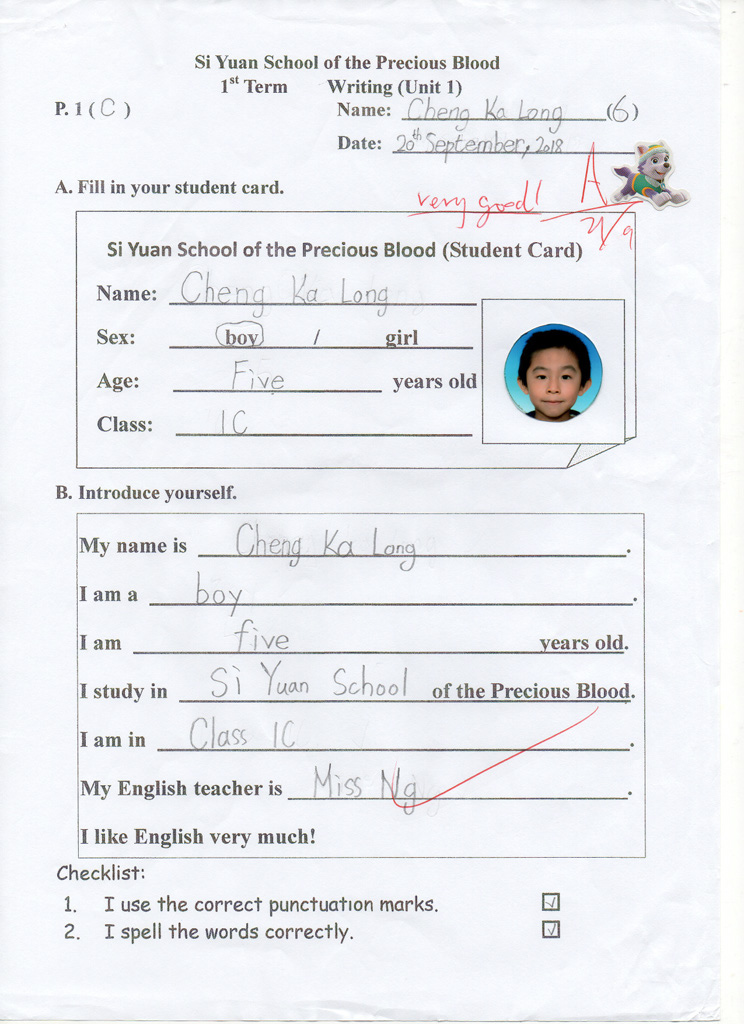 Si Yuan School of the Precious Blood
1st Term Writing (Unit 1)
P. 1 ( C ) Name: Cheng Ka Long (6)
Date: 20th September, 2018
A. Fill in your student card.
very good! A
21/9
Si Yuan School of the Precious Blood (Student Card)
Name: Cheng Ka Long
Sex: boy / girl
Age: Five years old
Class: 1C
B. Introduce yourself.
My name is Cheng Ka Long.
I am a boy.
I am five years old.
I study in Si Yuan School of the Precious Blood.
I am in Class 1C.
My English teacher is Miss Ng.
I like English very much!
Checklist:
1. I use the correct punctuation marks.
2. I spell the words correctly.